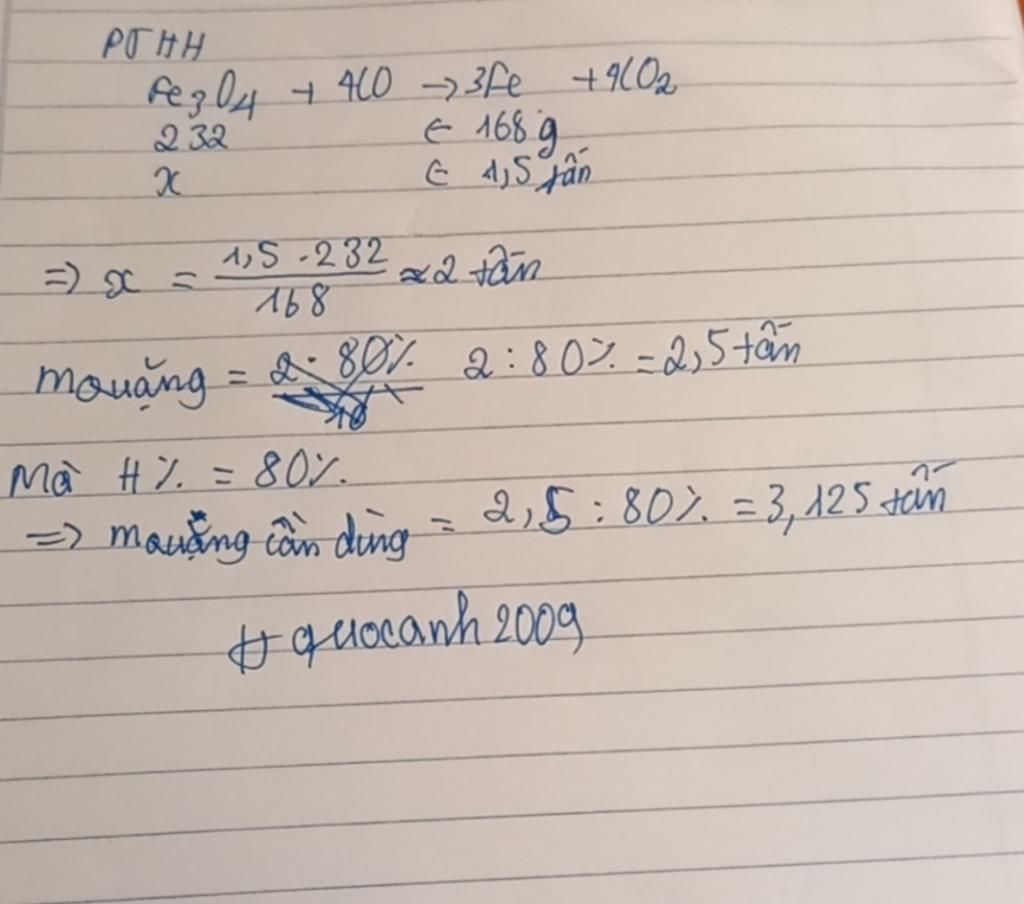 PTHH
Fe3O4 + 4CO → 3Fe + 4CO2
232 ← 168 g
x ← 1,5 tấn
=> x = 1,5 . 232 / 168 ≈ 2 tấn
mquặng = 2 : 80% = 2,5 tấn
Mà H% = 80%
=> mquặng cần dùng = 2,5 : 80% = 3,125 tấn
# quocanh2009